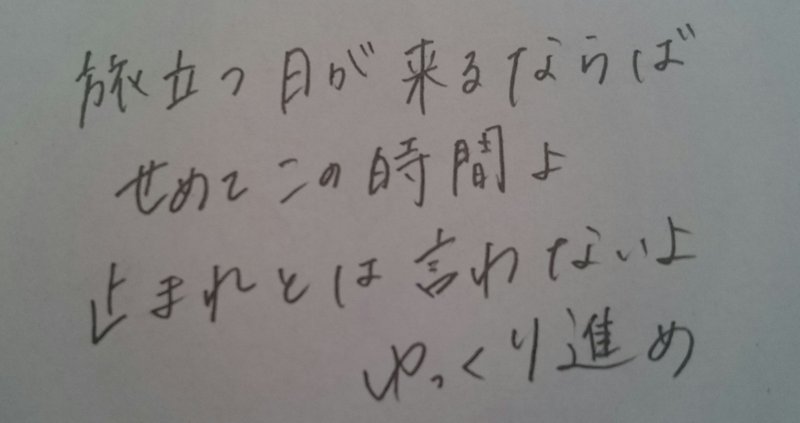 旅立つ日が来るならば
せめてこの時間よ
止まれとは言わないよ
ゆっくり進め